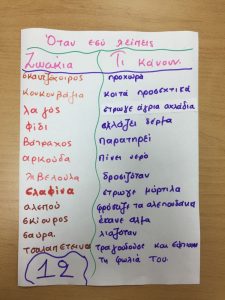 Όταν εσύ λείπεις
Ζωάκια Τι κάνουν
σκανζόχοιρος προχωρά
κουκουβάγια κοιτά προσεκτικά
λαγός έτρωγε άγρια αχλάδια
φίδι αλλάζει δέρμα
βάτραχος παρατηρεί
αρκούδα πίνει νερό
δροσιζόταν
ελαφίνα έτρωγε μύρτιλα
αλεπού τα αλεπουδάκια
σκίουρος έκανε άλμα
σαύρα λιαζόταν
τσαλαπετεινός τραγουδούσε και
τη φωλιά του
12